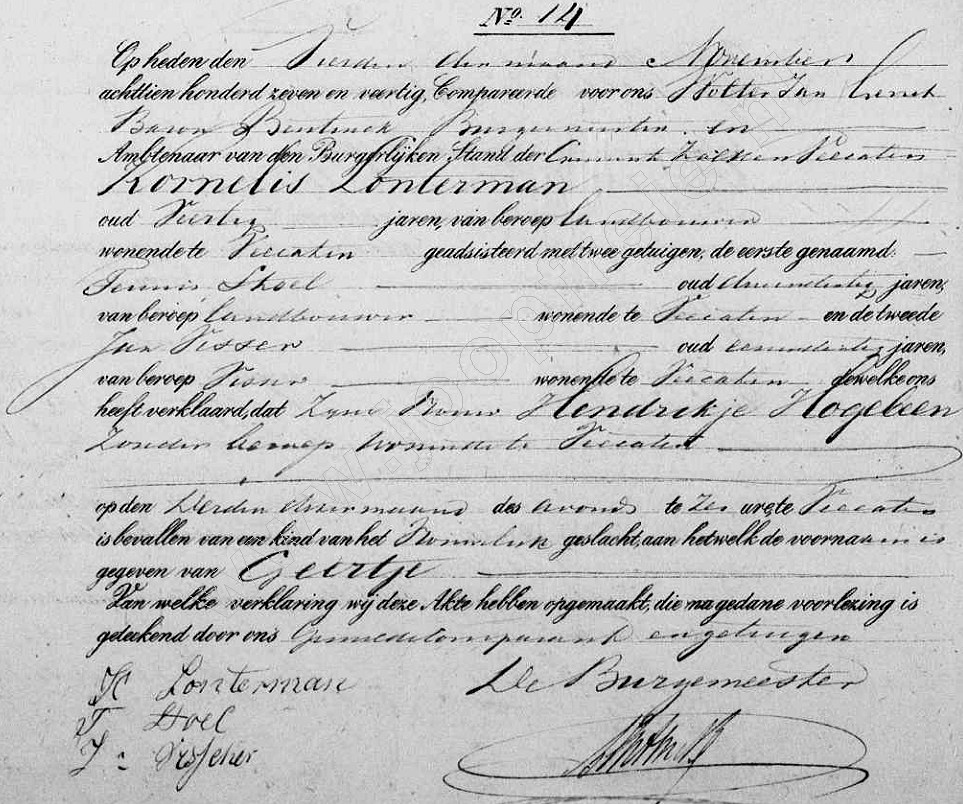 No. 14
Op heden den Vierden der maand November
achttien honderd zeven en veertig, Compareerde voor ons Wolter Jan Gerrit
Baron Bentinck Burgemeester en
Ambtenaar van den Burgerlijken Stand der Gemeente Zwollerkerspel
Kornelis Zonterman
oud Veertig jaren, van beroep Landbouwer
wonende te Veecaten geadsisteerd met twee getuigen, de eerste genaamd:
Teunis Stoel oud drieendertig jaren,
van beroep Landbouwer wonende te Veecaten en de tweede
Jan Visser oud eenendertig jaren,
van beroep wonende te Veecaten dewelke ons
heeft verklaard, dat Zyne Vrouw Hendrikje Hogebeen
Zonder beroep wonende te Veecaten
op den Derden dezer maand des avonds te Zes ure, te Veecaten
is bevallen van een kind van het Vrouwelijk geslacht, aan hetwelk de voornaam is
gegeven van Geertje
Van welke verklaring wij deze Akte hebben opgemaakt, die na gedane voorlezing is
geteekend door ons Gemeldecomparant en getuigen
K Zonterman
De Burgemeester
T Stoel
J: Visscher